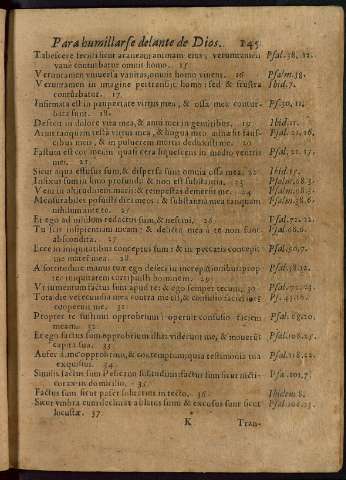 Para humillarse delante de Dios. 145
Tabescere fecisti sicut araneam animam eius: verumtamen Psal. 38. 12.
vane conturbatur omnis homo. 15
Verumtamen vniuersa vanitas, omnis homo viuens. 16 Psalm. 38.
Verumtamen in imagine pertransijt homo: sed & frustra Ibid. 7.
conturbatur. 17
Infirmata est in paupertate virtus mea, & ossa mea contur- Ps. 30. 11.
bata sunt. 18.
Defecit in dolore vita mea, & anni mei in gemitibus. 19 Ibid. 11.
Aruit tanquam testa virtus mea, & lingua mea adhæsit fauci- Psal. 21. 16.
bus meis, & in puluerem mortis deduxisti me. 20
Factum est cor meum quasi cera liquescens in medio ventris Psal. 21. 15.
mei. 21
Sicut aqua effusus sum, & dispersa sunt omnia ossa mea. 22 Ibid. 15.
Infixus sum in limo profundi: & non est substantia. 23 Psalm. 68. 3.
Veni in altitudinem maris: & tempestas demersit me. 24 Psalm. 68. 3.
Mensurabiles posuisti dies meos: & substantia mea tanquam Psalm. 38. 6.
nihilum ante te. 27
Et ego ad nihilum redactus sum, & nesciui. 28 Psal. 72. 22.
Tu scis insipientiam meam: & delicta mea à te non sunt Psal. 68. 6.
abscondita. 27
Ecce in iniquitatibus conceptus sum: & in peccatis concepit Psal. 50. 7.
me mater mea. 28
A fortitudine manus tuæ ego defeci in increpationibus: prop- Psal. 38. 12.
ter iniquitatem corripuisti hominem. 29
Vt iumentum factus sum apud te: & ego semper tecum. 30 Psal. 72. 23.
Tota die verecundia mea contra me est, & confusio faciei meæ Ps. 43. 16.
cooperuit me. 31
Propter te sustinui opprobrium: operuit confusio faciem Psal. 68. 20.
meam. 32
Et ego factus sum opprobrium illis: viderunt me, & mouerũt Psal. 108. 25.
capita sua. 33
Aufer à me opprobrium, & contemptum, quia testimonia tua Psal. 118. 22.
exquisiui. 34
Similis factus sum Pelicano solitudinis: factus sum sicut nicti- Psa. 101. 7.
corax in domicilio. 35
Factus sum sicut passer solitarius in tecto. 36 Ibidem 8.
Sicut vmbra cum declinat ablatus sum: & excussus sum sicut Psal. 108. 23.
locustæ. 37
K Tran-